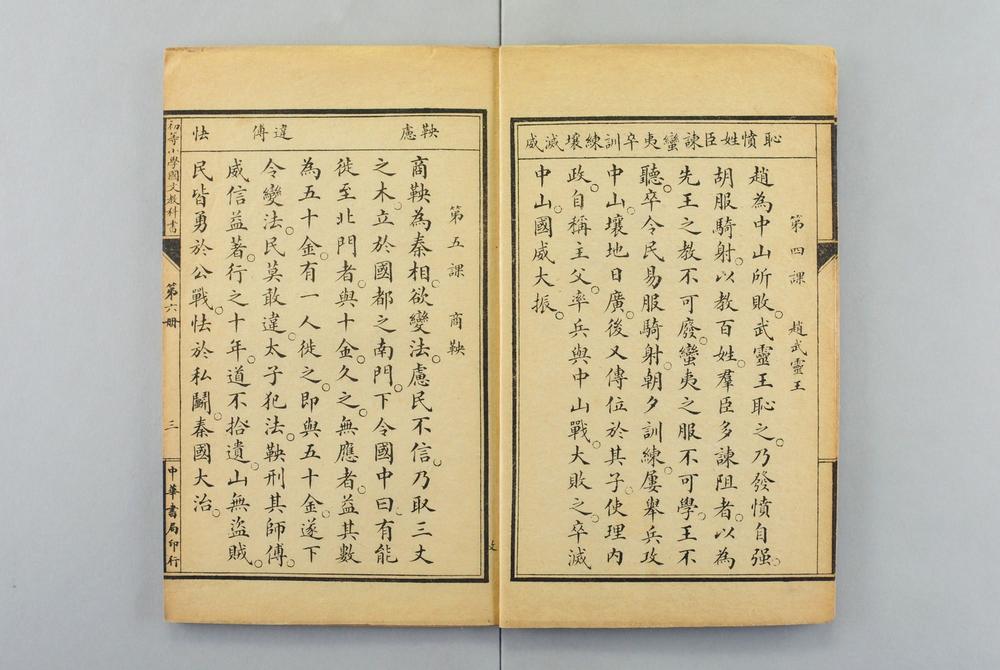 恥憤姓臣諫蠻夷卒訓練壤滅威
第四課　趙武靈王
趙為中山所敗。武靈王恥之。乃發憤自强。
胡服騎射。以教百姓。羣臣多諫阻者。以為
先王之教不可廢。蠻夷之服不可學。王不
聽。卒令民易服騎射。朝夕訓練。屢舉兵攻
中山。壤地日廣。後又傳位於其子。使理內
政。自稱主父。率兵與中山戰。大敗之。卒滅
中山。國威大振。
鞅慮　違傅　怯
第五課　商鞅
商鞅為秦相。欲變法。慮民不信。乃取三丈
之木。立於國都之南門。下令國中曰。有能
徙至北門者。與十金。久之。無應者。益其數
為五十金。有一人徙之。即與五十金。遂下
令變法。民莫敢違。太子犯法。鞅刑其師傅。
威信益著。行之十年。道不拾遺。山無盜賊。
民皆勇於公戰。怯於私鬭。秦國大治。
初等小學國文教科書
第六册
三
中華書局印行